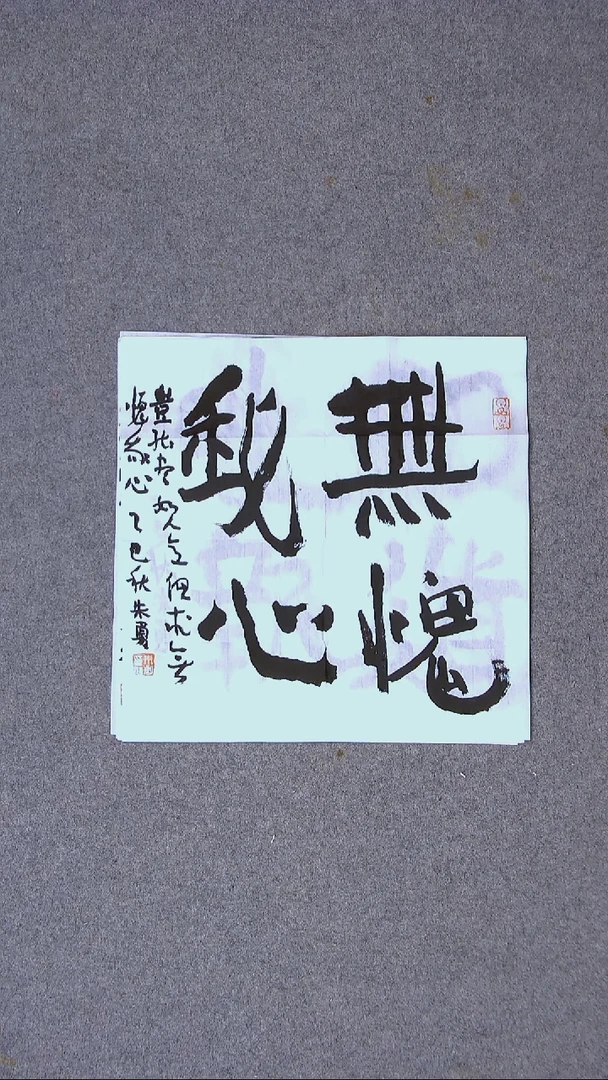 無愧
我心
豈能盡如人意但求無
愧我心乙巳秋朱勇